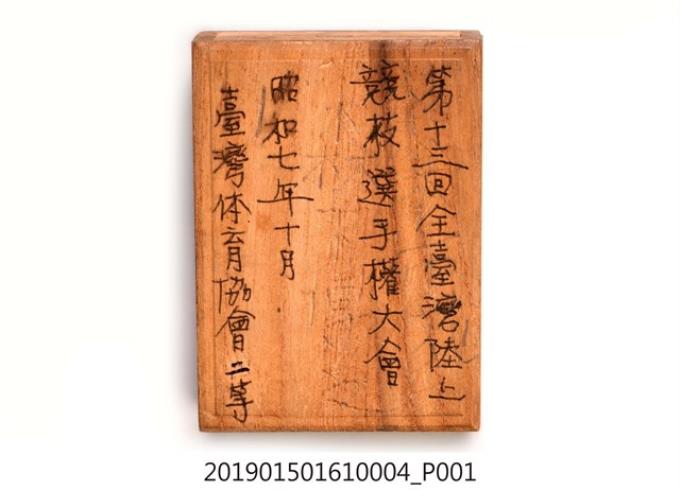 第十三回全臺灣陸上
競技選手權大會
昭和七年十月
臺灣体育協會二等
201901501610004_P001